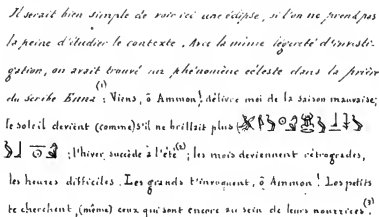 Il serait bien simple de voir ici une éclipse, si l'on ne prend pas
la peine d'étudier le contexte. Avec la même légèreté d'investi-
gation, on avait trouvé un phénomène céleste dans la prière
du scribe Enna (1) : Viens, ô Ammon! délivre moi de la saison mauvaise;
le soleil devient (comme) s'il ne brillait plus (
; l'hiver succède à l'été (2); les mois deviennent rétrogrades,
les heures difficiles. Les grands t'invoquent, ô Ammon! Les petits
te cherchent, (même) ceux qui sont encore au sein de leurs nourrices. (3)